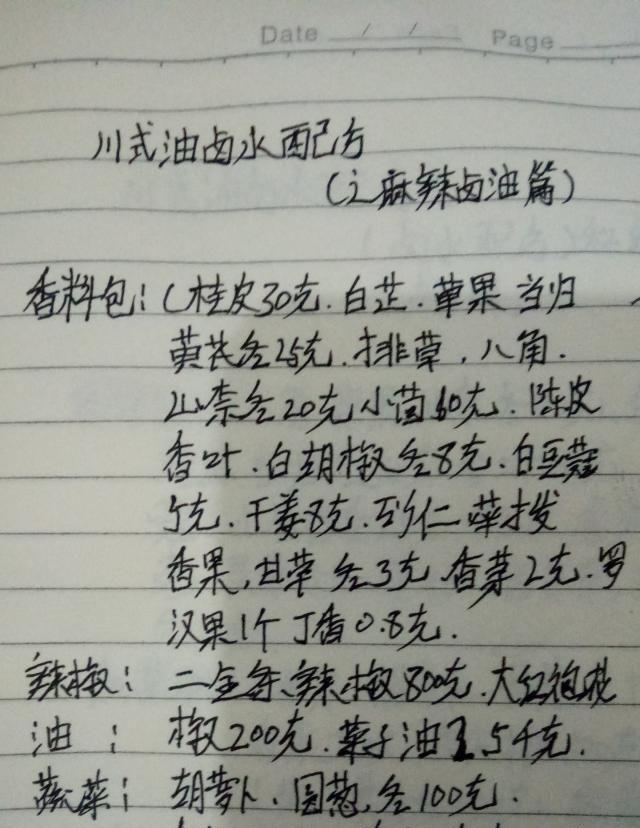 Date / / Page
川式油卤水配方
(之麻辣卤油篇)
香料包:(桂皮30克.白芷.草果 当归
黄芪各25克.排草,八角.
山奈各20克 小茴60克.陈皮
香叶.白胡椒各8克.白豆蔻
5克.干姜8克.砂仁 荜拨
香果,甘草各3克 香茅2克.罗
汉果1个 丁香0.8克.
辣椒:二金条辣椒800克.大红袍花
油:椒200克.菜子油2.5千克.
蔬菜:胡萝卜.圆葱,各100克.